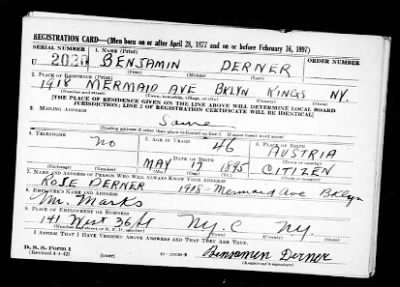 REGISTRATION CARD—(Men born on or after April 28, 1877 and on or before February 16, 1897)
SERIAL NUMBER 1. NAME (Print)
U 2020 BENJAMIN DERNER
(First) (Middle) (Last)
ORDER NUMBER
2. PLACE OF RESIDENCE (Print)
1918 MERMAID AVE BKLYN KINGS NY.
(Number and street) (Town, township, village, or city) (County) (State)
[THE PLACE OF RESIDENCE GIVEN ON THE LINE ABOVE WILL DETERMINE LOCAL BOARD
JURISDICTION; LINE 2 OF REGISTRATION CERTIFICATE WILL BE IDENTICAL]
3. MAILING ADDRESS
Same
[Mailing address if other than place indicated on line 2. If same insert word same]
4. TELEPHONE 5. AGE IN YEARS 6. PLACE OF BIRTH
no 46 AUSTRIA
DATE OF BIRTH
MAY 17 1895 CITIZEN
(Exchange) (Number) (Mo.) (Day) (Yr.) (State or country)
7. NAME AND ADDRESS OF PERSON WHO WILL ALWAYS KNOW YOUR ADDRESS
ROSE DERNER 1918 - Mermaid Ave Bklyn
8. EMPLOYER'S NAME AND ADDRESS
Mr. Marks
9. PLACE OF EMPLOYMENT OR BUSINESS
141 West 36 St N.Y.C N.Y.
(Number and street or R. F. D. number) (Town) (County) (State)
I AFFIRM THAT I HAVE VERIFIED ABOVE ANSWERS AND THAT THEY ARE TRUE.
D. S. S. Form 1
(Revised 4-1-42) (over) Benjamin Derner
(Registrant's signature)